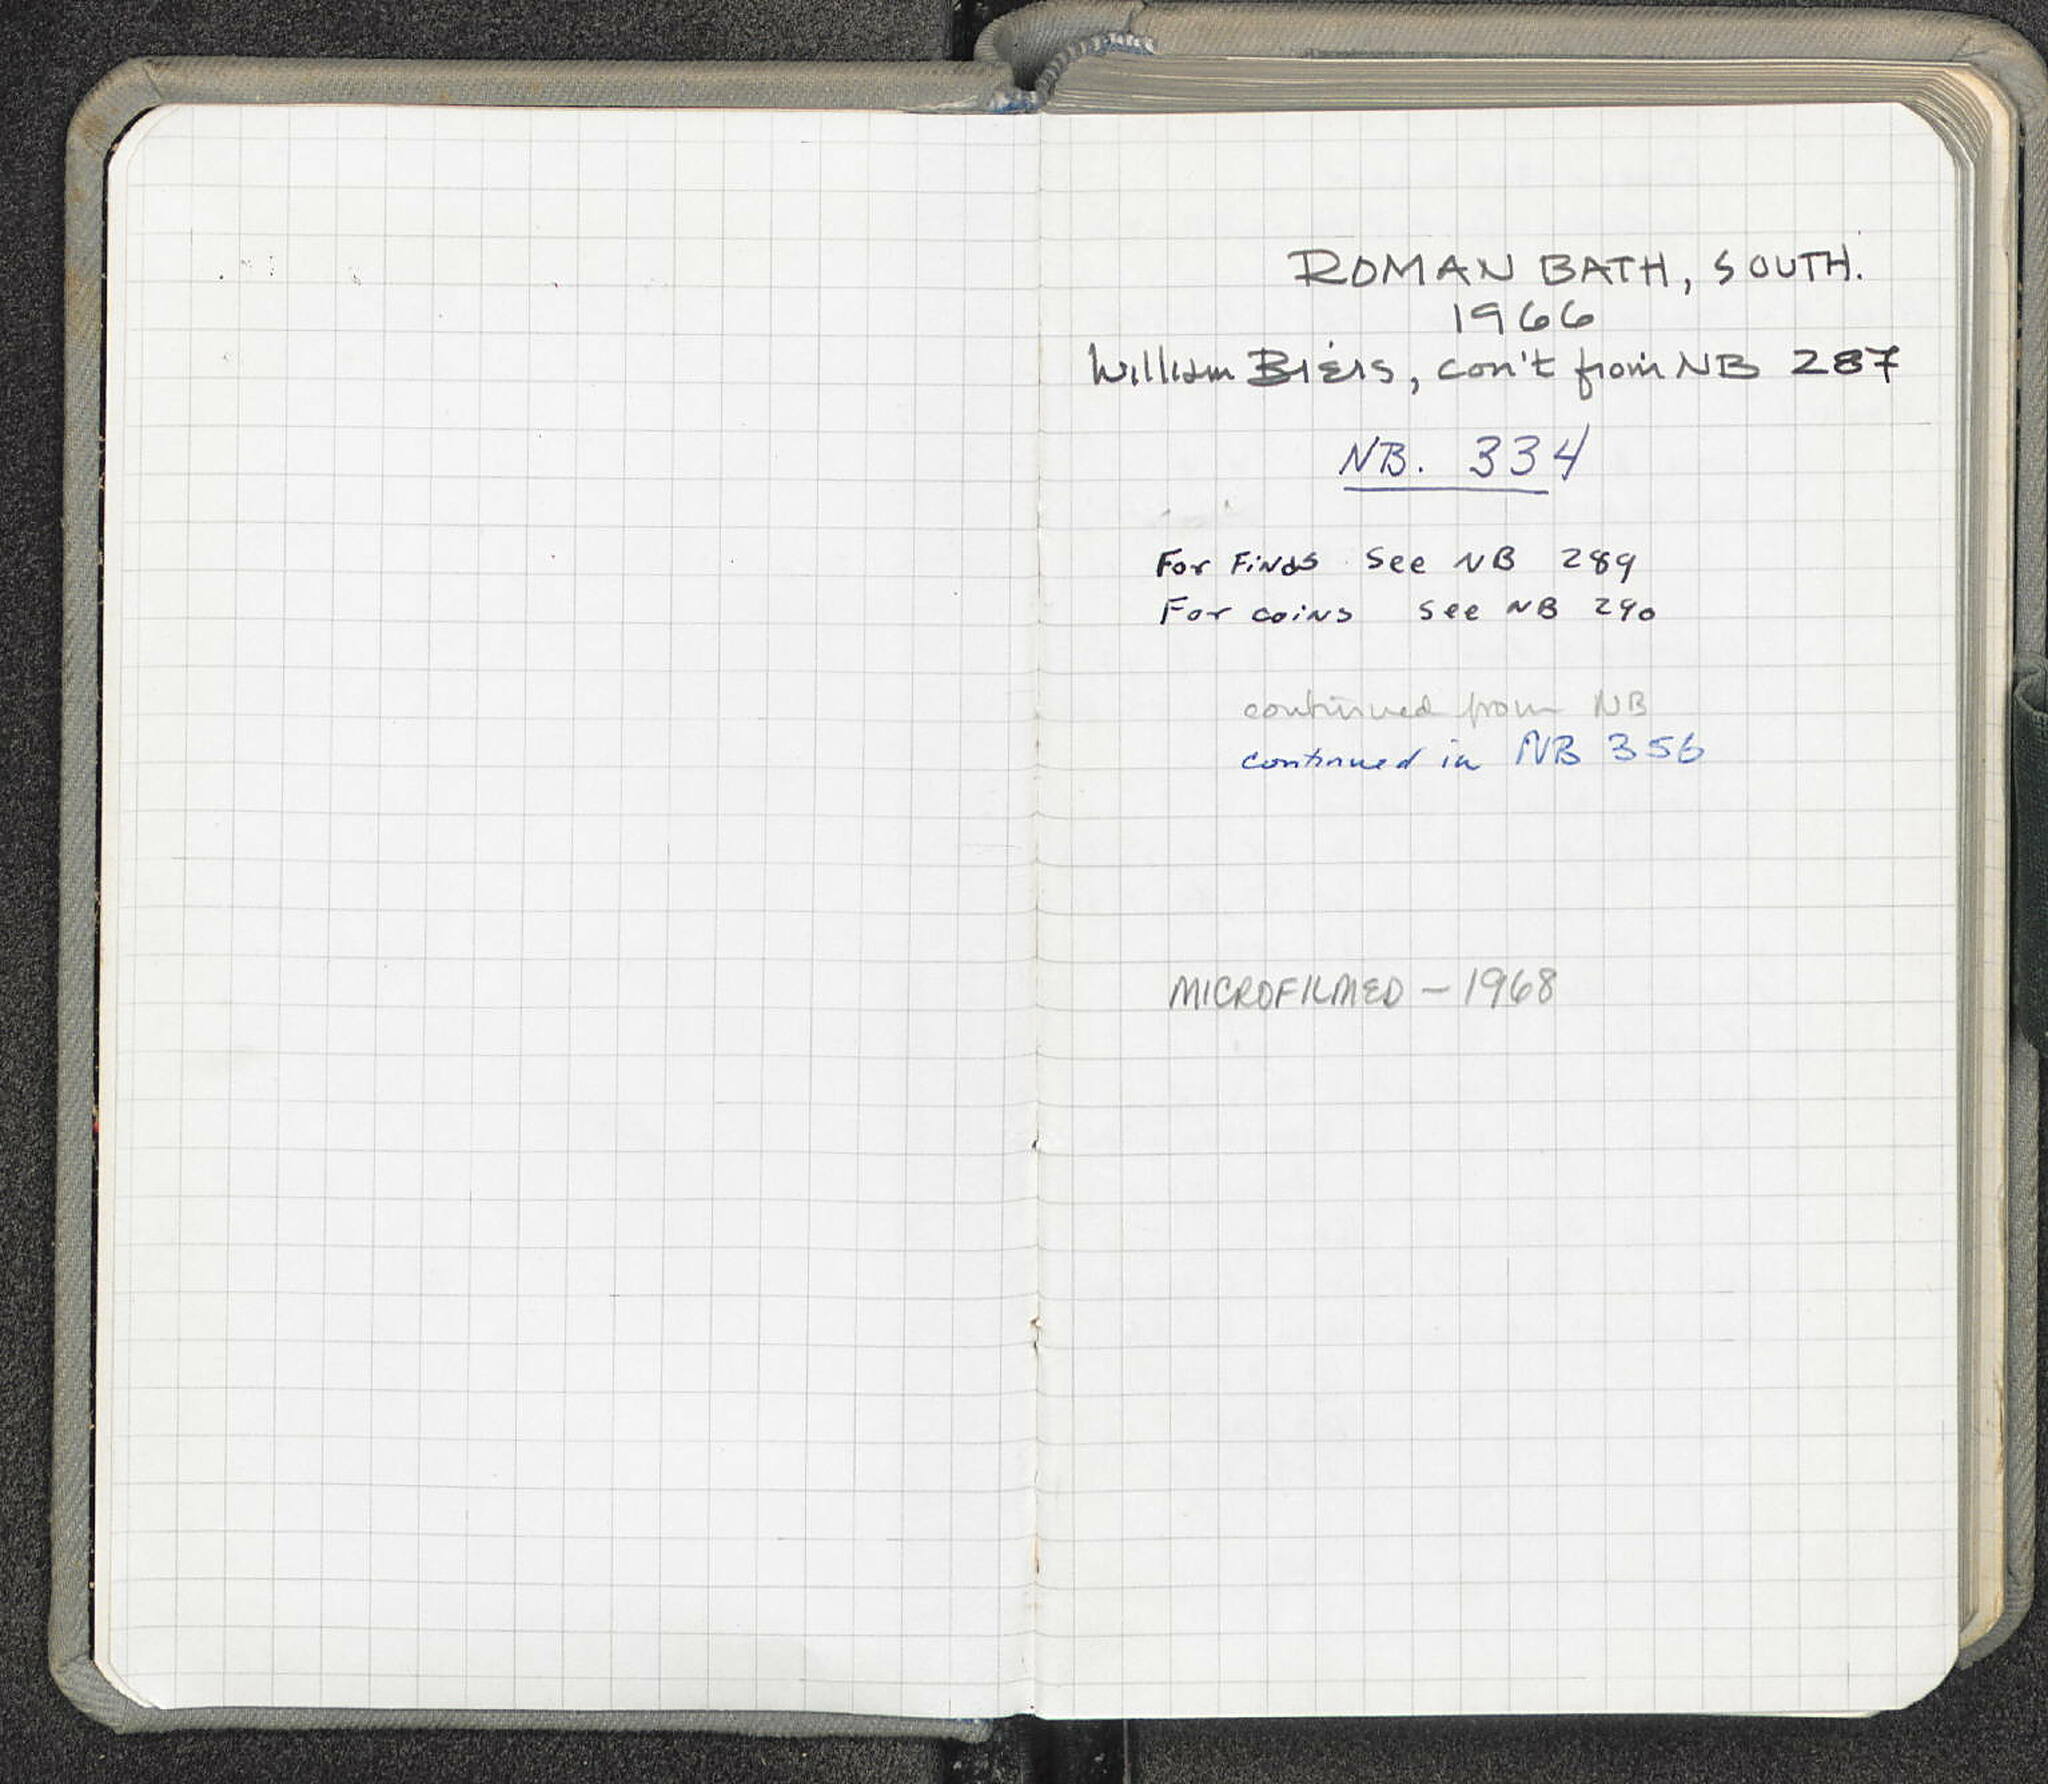 ROMAN BATH, SOUTH.
1966
William Biers, con't from NB 287
NB. 334
For Finds See NB 289
For coins See NB 290
continued from NB
continued in NB 356
MICROFILMED - 1968